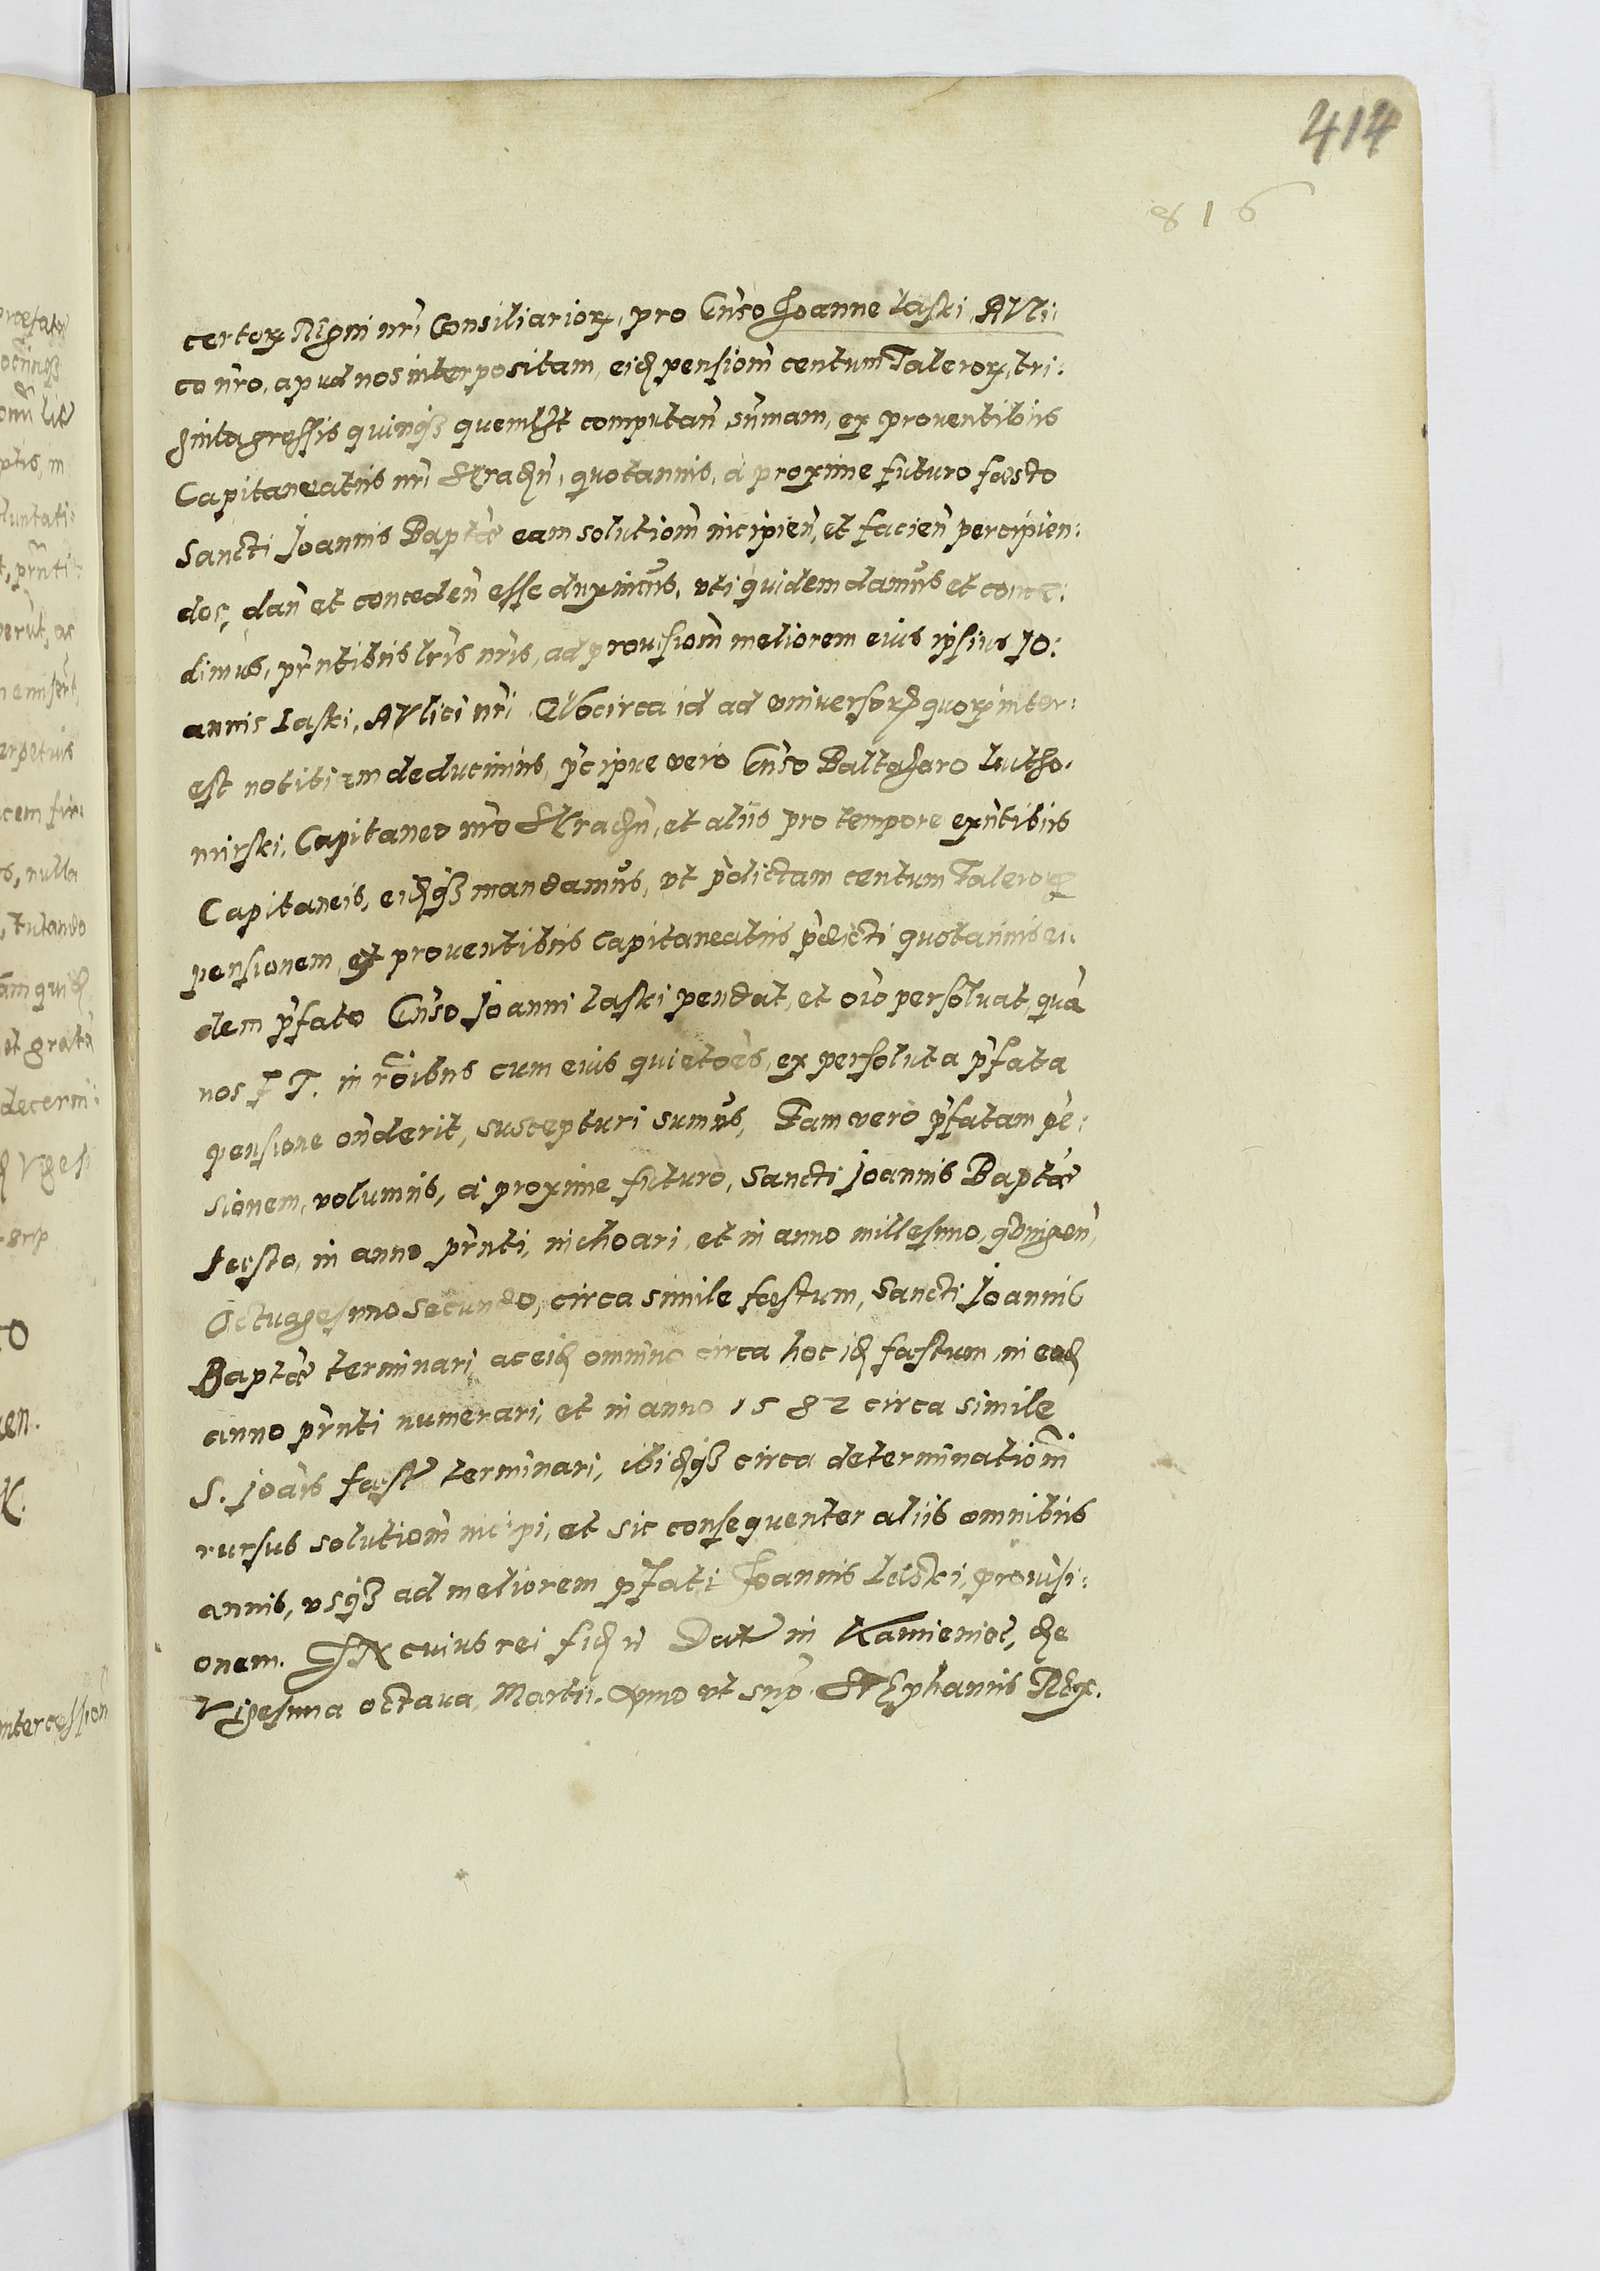 414
816
certorꝝ Regni nr̄i Consiliariorꝝ, pro Gn̄so Joanne Laski, AVli:
co nr̄o, apud nos interpositam, eidꝫ pensionē centum Talerorꝝ, tri:
ginta grossis quinqꝫ quemlꝫt computan̄ sūmam, ex prouentibus
Capitaneatus nr̄i Siradn̄, quotannis, à proxime futuro faesto
Sancti Joannis Baptæ eam solutionē incipien̄, et facien̄ percipien:
dos, dan̄ et conceden̄ esse duximus, vti quidem damus et conce:
dimus, pn̄tibus lr̄is nr̄is, ad prouisionē meliorem eius ipsius Jo:
annis Laski, AVlici nr̄i. QVocirca id ad vniversorꝝ quorꝝ inter:
est notitiam deducimus, p̄cipue vero Gn̄so Baltasaro Lutho:
mirski, Capitaneo nr̄o Siradn̄, et aliis pro tempore exn̄tibus
Capitaneis, eidꝫqꝫ mandamus, vt p̄dictam centum Talerorꝝ
pensionem, ex prouentibus Capitaneatus p̄dicti quotannis ei:
dem p̄fato Gn̄so Joanni Laski pendat, et oīo persoluat, quā
nos F T. in rōibus cum eius quietōes, ex persoluta p̄fata
pensione on̄derit, suscepturi sumus, Eam vero p̄fatam pē:
sionem, volumus, à proxime futuro, Sancti Joannis Baptæ
faesto, in anno pn̄ti, inchoari, et in anno millesimo, qūingen̄,
Octuagesimo secundo, circa simile faestum, Sancti Joannis
Baptæ terminari, ac eidꝫ omnino circa hoc idꝫ faestum, in eodꝫ
anno pn̄ti numerari, et in anno 1582 circa simile
S. Joāis faestū terminari, ibidꝫqꝫ circa determinationē
rursus solutionē incipi, et sic consequenter aliis omnibus
annis, vsqꝫ ad meliorem p̄fati Joannis Laski, prouisi:
onem. IN cuius rei fidꝫ Dat̄ in Kamieniec, die
Vigesima octava, Martii. Anno vt supᷓ. STEphanus REx.